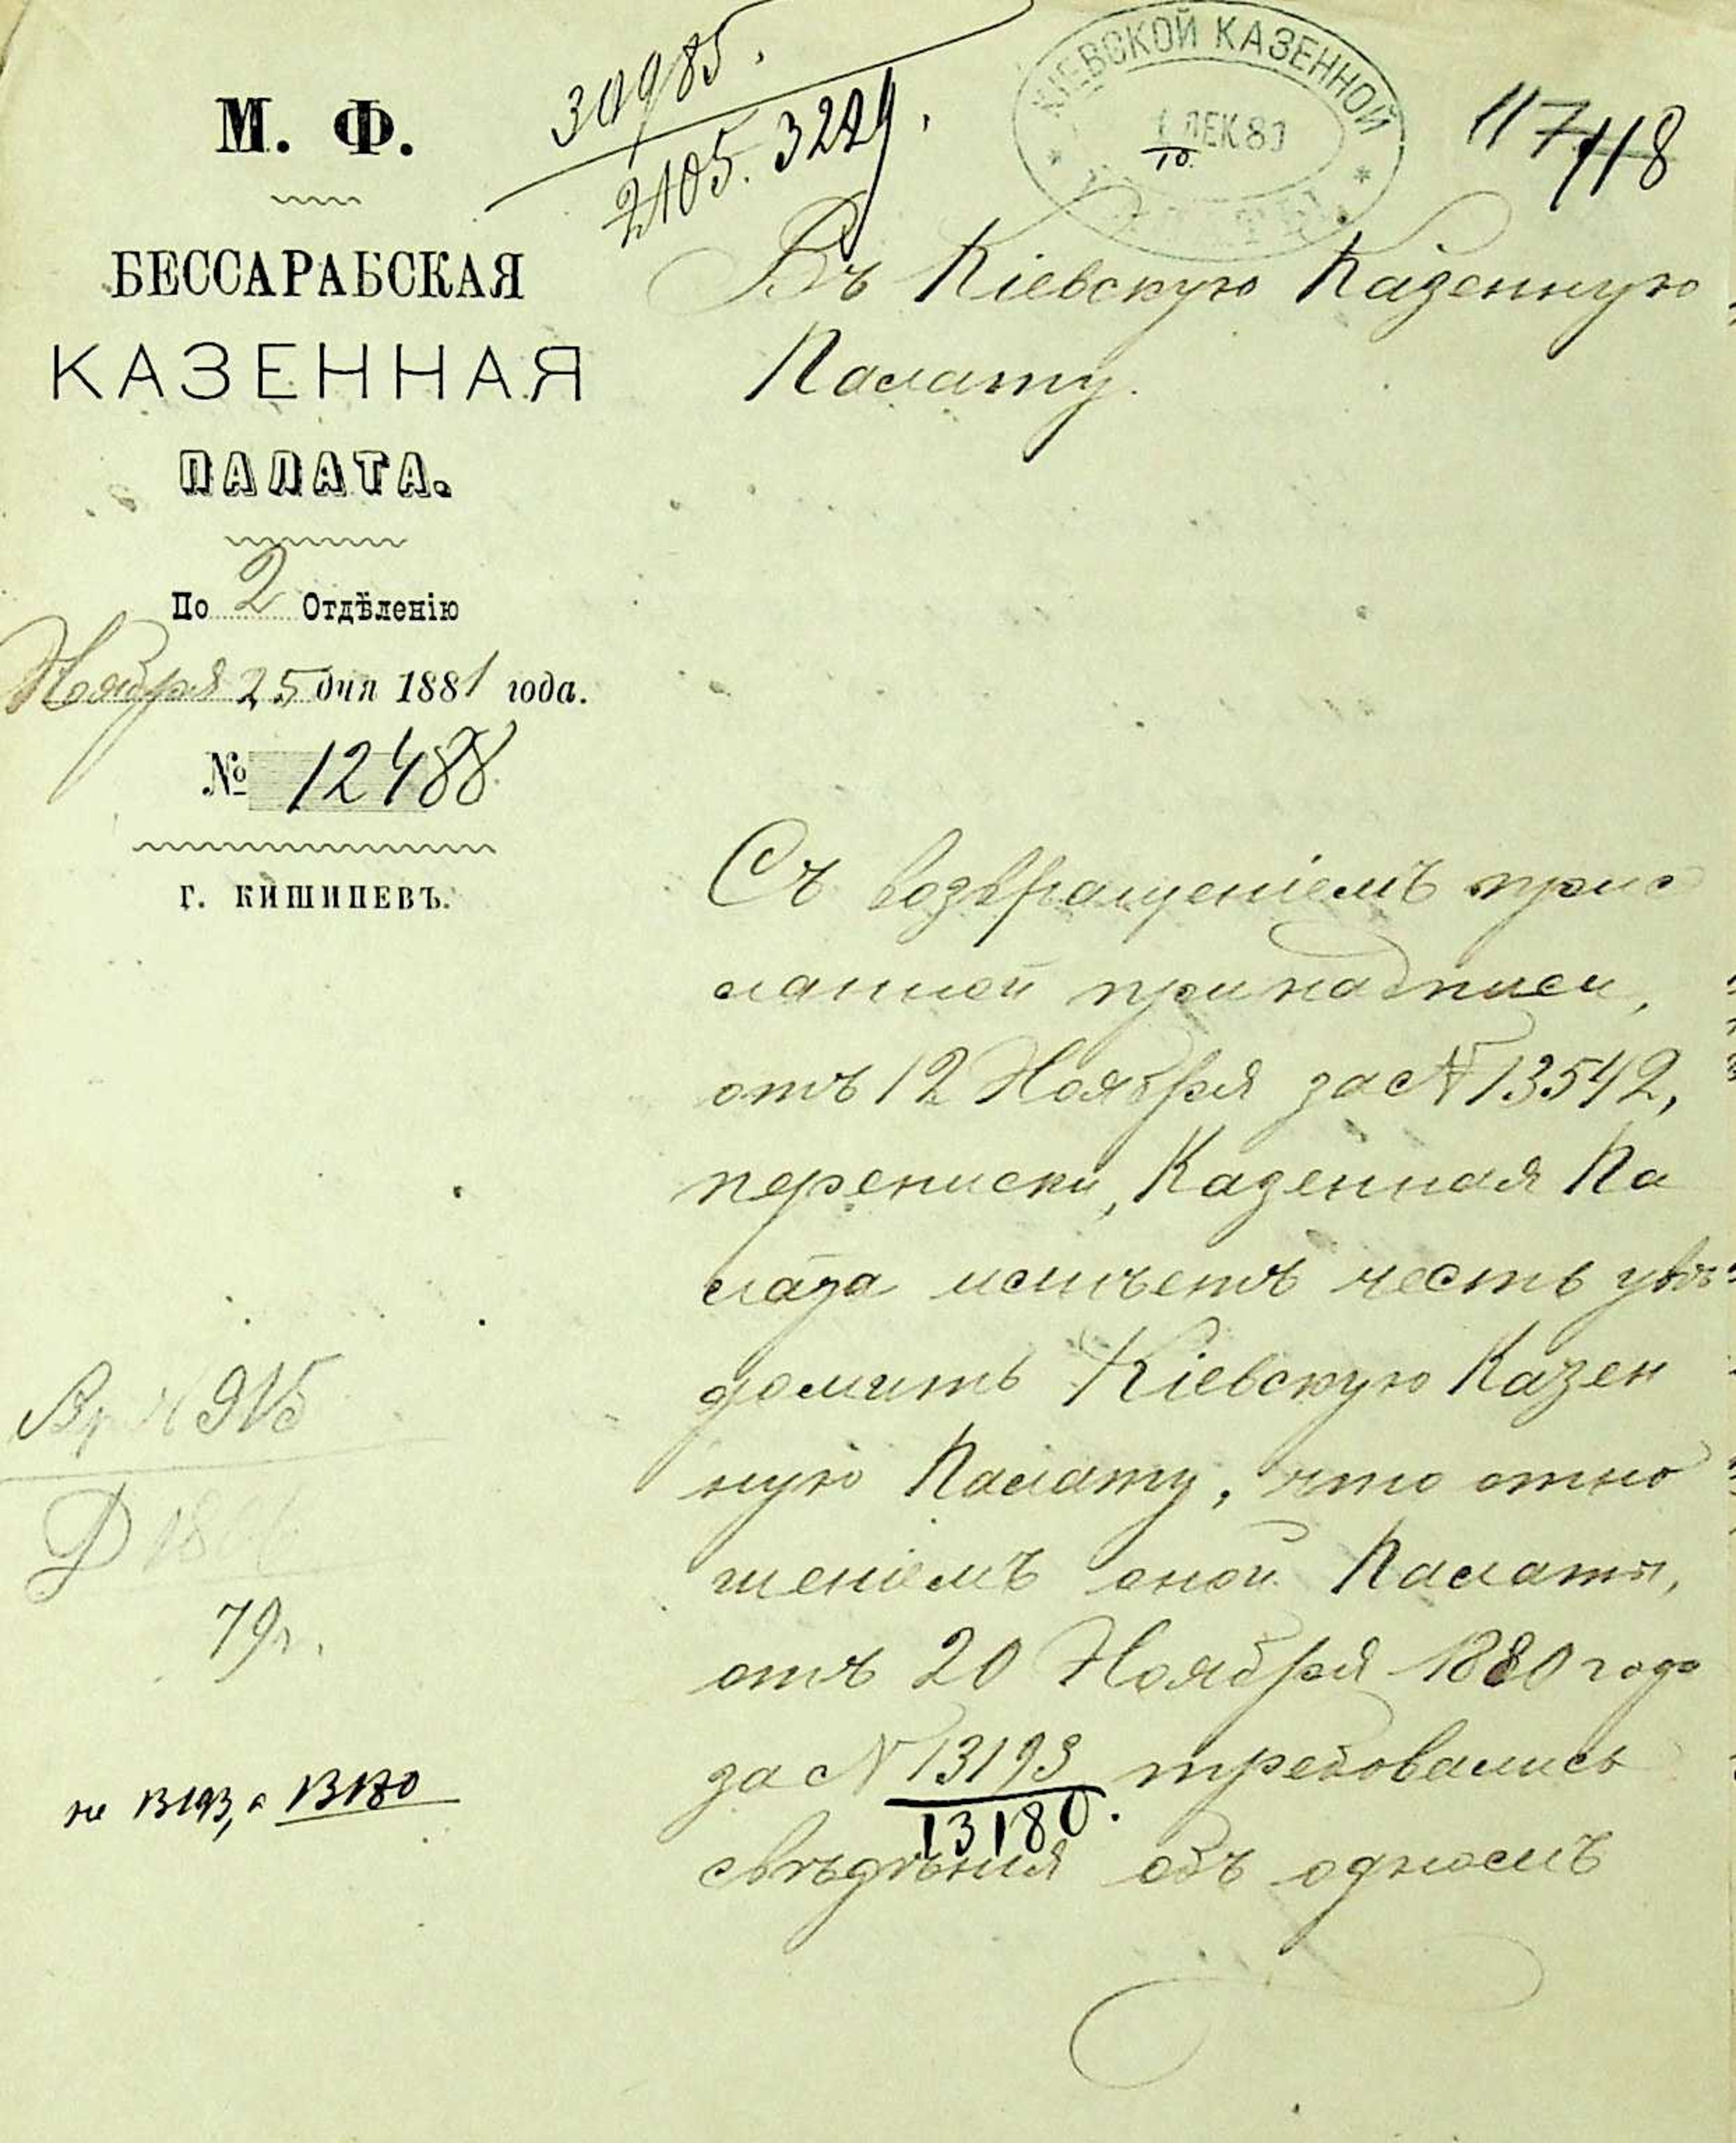 М. Ф.
БЕССАРАБСКАЯ
КАЗЕННАЯ
ПАЛАТА.
По 2 Отдѣленію
Ноября 25 дня 1881 года.
№ 12488
г. КИШИНЕВЪ.
30985.
2105. 3229.
КІЕВСКОЙ КАЗЕННОЙ
1 ДЕК 8
10.
117 118
Въ Кіевскую Казенную
Палату.
Съ возвращеніемъ прис
ланной при надписи,
отъ 12 Ноября за № 13542,
переписки, Казенная Па
лата имѣетъ честь увѣ
домить Кіевскую Казен
ную Палату, что отно
шеніемъ оной Палаты,
отъ 20 Ноября 1880 года
за № 13193 требовались
13180.
свѣдѣнія объ одномъ
915
Д
79г.
не 13193, а 13180